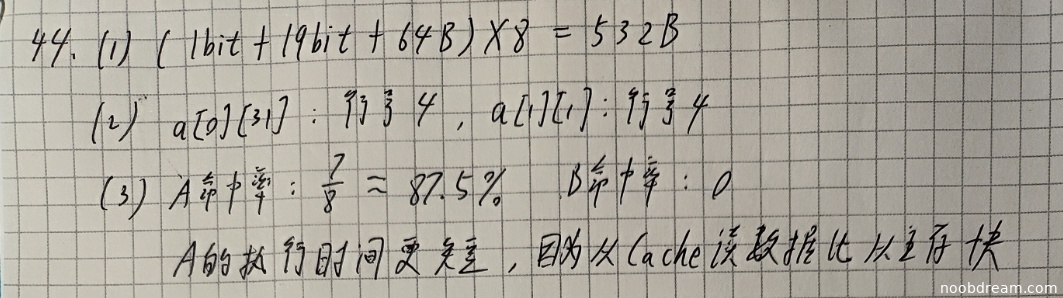 44. (1) ( 1bit + 19bit + 64B ) × 8 = 532B
(2) a[0][31] : 行号 4 , a[1][1] : 行号 4
(3) A命中率 : 7/8 = 87.5% B命中率 : 0
A的执行时间更短 , 因为从Cache读数据比从主存快
noobdream.com